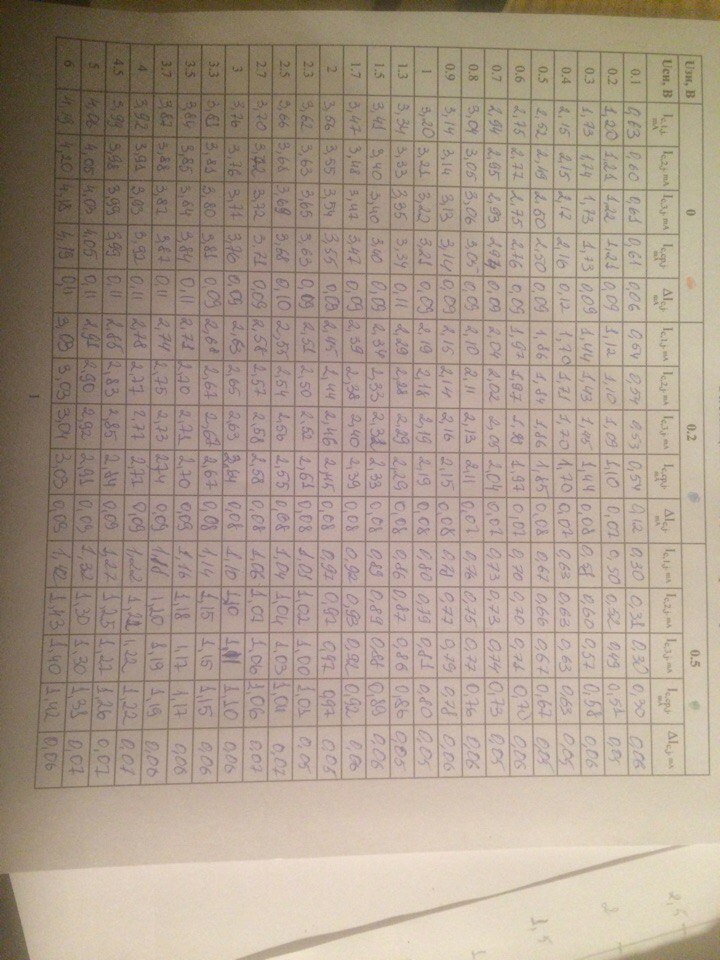 Uзи, В 0 0.2 0.5
Uси, В Iс1, mA Iс2, mA Iс3, mA Iсср, mA ΔIс, mA Iс1, mA Iс2, mA Iс3, mA Iсср, mA ΔIс, mA Iс1, mA Iс2, mA Iс3, mA Iсср, mA ΔIс, mA
0.1 0,63 0,60 0,61 0,61 0,06 0,54 0,54 0,53 0,54 0,12 0,30 0,31 0,30 0,30 0,06
0.2 1,20 1,21 1,22 1,21 0,09 1,12 1,10 1,09 1,10 0,07 0,50 0,52 0,49 0,51 0,05
0.3 1,73 1,74 1,73 1,73 0,09 1,44 1,43 1,45 1,44 0,08 0,60 0,57 0,58 0,06
0.4 2,15 2,15 2,17 2,16 0,12 1,70 1,71 1,70 1,70 0,07 0,63 0,63 0,63 0,63 0,05
0.5 2,52 2,49 2,50 2,50 0,09 1,86 1,84 1,86 1,85 0,08 0,67 0,66 0,67 0,67 0,05
0.6 2,75 2,77 2,75 2,76 0,09 1,97 1,97 1,98 1,97 0,07 0,70 0,70 0,71 0,70 0,06
0.7 2,94 2,95 2,93 2,94 0,09 2,04 2,02 2,05 2,04 0,07 0,73 0,73 0,74 0,73 0,05
0.8 3,04 3,05 3,06 3,05 0,09 2,10 2,11 2,13 2,11 0,07 0,76 0,75 0,77 0,76 0,06
0.9 3,14 3,14 3,13 3,14 0,09 2,15 2,14 2,16 2,15 0,08 0,78 0,77 0,79 0,78 0,06
1 3,20 3,21 3,22 3,21 0,09 2,19 2,18 2,19 2,19 0,08 0,80 0,79 0,81 0,80 0,05
1.3 3,34 3,33 3,35 3,34 0,11 2,29 2,28 2,29 2,29 0,08 0,86 0,87 0,86 0,86 0,05
1.5 3,41 3,40 3,40 3,40 0,09 2,34 2,33 2,32 2,33 0,08 0,89 0,89 0,88 0,89 0,06
1.7 3,47 3,48 3,47 3,47 0,09 2,39 2,38 2,40 2,39 0,08 0,92 0,93 0,92 0,92 0,06
2 3,56 3,55 3,54 3,55 0,09 2,45 2,44 2,46 2,45 0,08 0,97 0,97 0,97 0,97 0,06
2.3 3,62 3,63 3,65 3,63 0,09 2,51 2,50 2,52 2,51 0,08 1,01 1,02 1,00 1,01 0,05
2.5 3,66 3,68 3,69 3,68 0,10 2,55 2,54 2,56 2,55 0,08 1,04 1,04 1,03 1,04 0,07
2.7 3,70 3,72 3,72 3,71 0,09 2,58 2,57 2,58 2,58 0,08 1,06 1,07 1,06 1,06 0,07
3 3,76 3,76 3,77 3,76 0,09 2,63 2,65 2,63 2,64 0,08 1,10 1,10 1,11 1,10 0,06
3.3 3,81 3,81 3,80 3,81 0,09 2,68 2,67 2,67 2,67 0,08 1,14 1,15 1,15 1,15 0,06
3.5 3,84 3,85 3,84 3,84 0,11 2,71 2,70 2,71 2,70 0,09 1,16 1,18 1,17 1,17 0,06
3.7 3,87 3,88 3,87 3,87 0,11 2,74 2,75 2,73 2,74 0,09 1,18 1,20 1,19 1,19 0,06
4 3,92 3,91 3,93 3,92 0,11 2,78 2,77 2,77 2,77 0,09 1,22 1,21 1,22 1,22 0,07
4.5 3,99 3,98 3,99 3,99 0,11 2,85 2,83 2,85 2,84 0,09 1,27 1,25 1,27 1,26 0,07
5 4,06 4,05 4,03 4,05 0,11 2,91 2,90 2,92 2,91 0,09 1,32 1,30 1,30 1,31 0,07
6 4,19 4,20 4,18 4,19 0,11 3,03 3,03 3,04 3,03 0,09 1,42 1,43 1,40 1,42 0,06
1
1,5